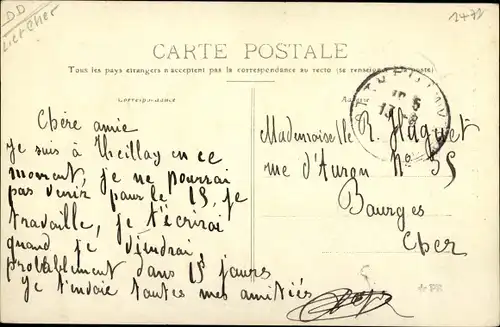 DD
Loir et Cher
CARTE POSTALE
Tous les pays étrangers n'acceptent pas la correspondance au recto (se renseigner à la poste)
Correspondance
Adresse
Chère amie
Je suis à Theillay en ce
moment, je ne pourrai
pas venir pour le 15, je
travaille, je t'écrirai
quand je viendrai,
probablement dans 15 jours
Je t'envoie toutes mes amitiés
Mademoiselle R. Huguet
rue d'Auron No 55
Bourges
Cher